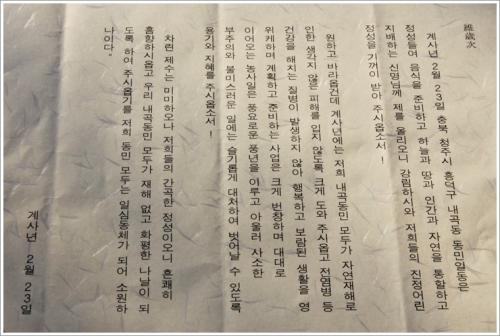 維歲次
계사년 2월 23일 충북 청주시 흥덕구 내곡동 동민일동은
정성들여 음식을 준비하고 하늘과 땅과 인간과 자연을 통할하고
지배하는 신명님께 제를 올리오니 강림하시와 저희들의 진정어린
정성을 기꺼이 받아 주시옵소서!
원하고 바라옵건데 계사년에는 저희 내곡동민 모두가 자연재해로
인한 생각지 않은 피해를 입지 않도록 크게 도와 주시옵고 전염병 등
건강을 해치는 질병이 발생하지 않아 행복하고 보람된 생활을 영
위케하며 계획하고 준비하는 사업은 크게 번창하며 대대로
이어오는 농사일은 풍요로운 풍년을 이루고 아울러 사소한
부주의와 불미스러운 일에는 슬기롭게 대처하여 벗어날 수 있도록
용기와 지혜를 주시옵소서!
차린 제수는 미미하오나 저희들의 간곡한 정성이오니 흔쾌히
흠향하시옵고 우리 내곡동민 모두가 재해 없고 화평한 나날이 되
도록 하여 주시옵기를 저희 동민 모두는 일심동체가 되어 소원하
나이다."
계사년 2월 23일